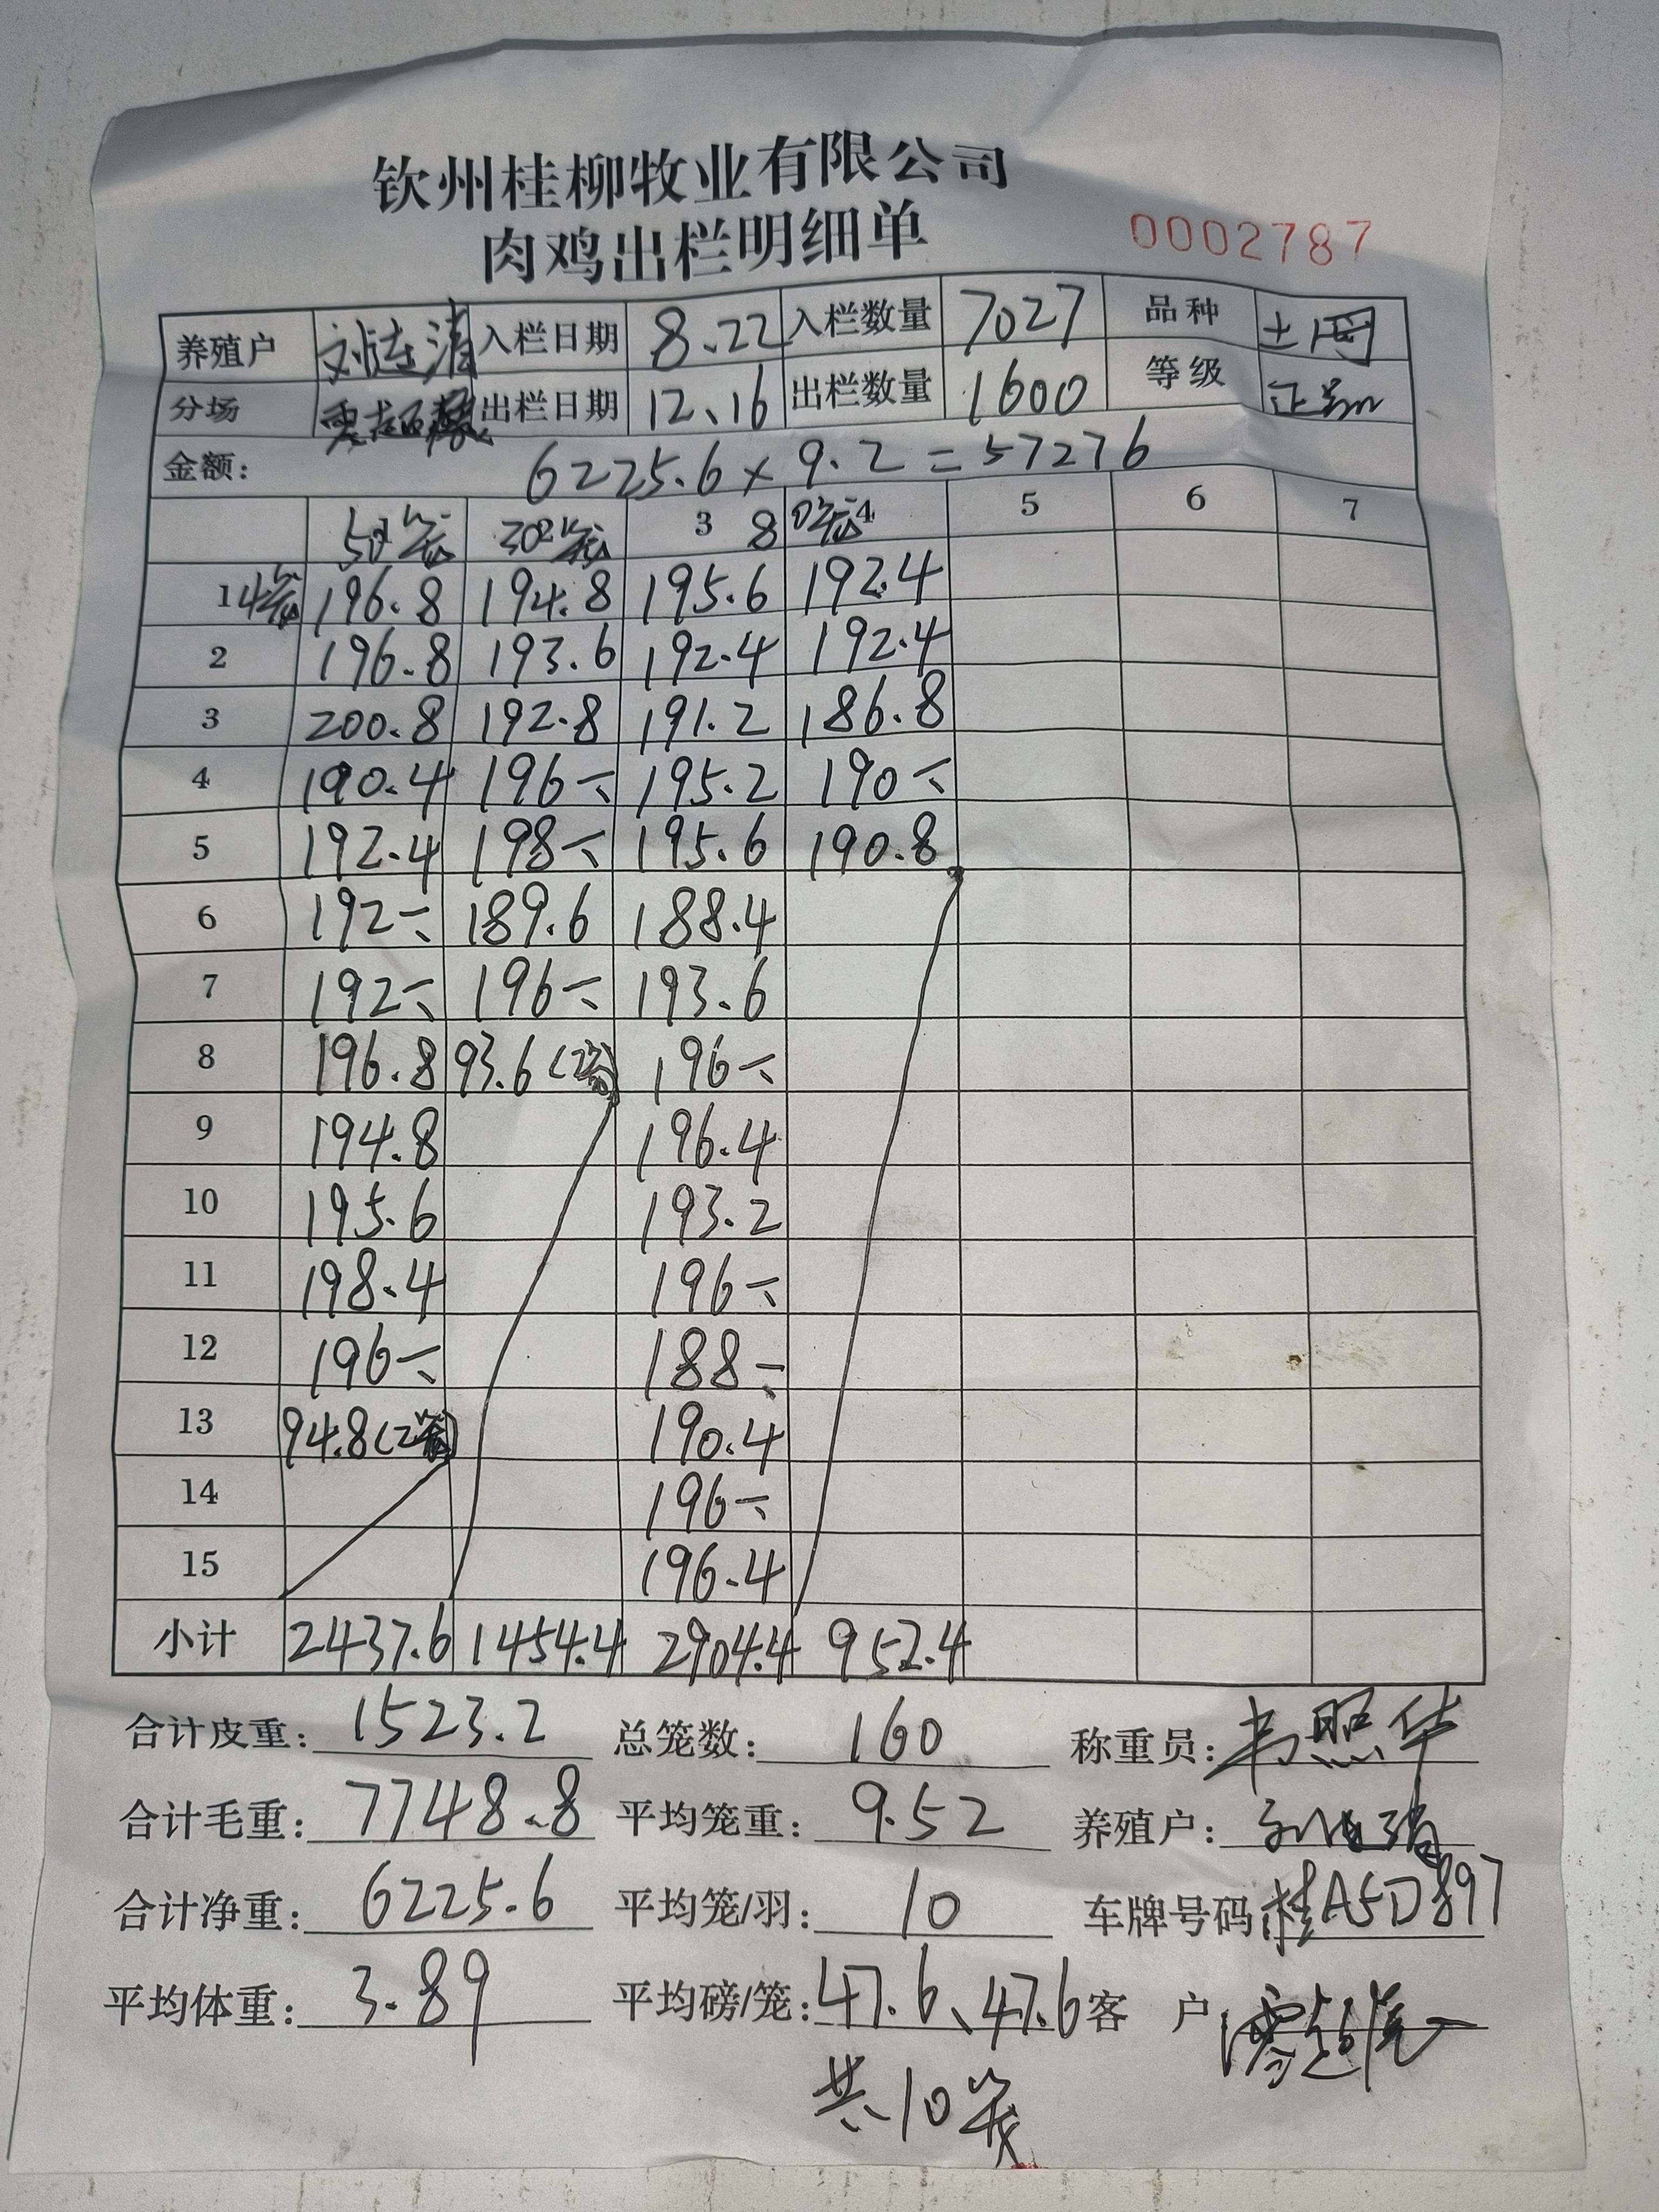 钦州桂柳牧业有限公司
肉鸡出栏明细单 0002787
养殖户 刘连清 入栏日期 8.22 入栏数量 7027 品种 土
分场 出栏日期 12.16 出栏数量 1600 等级 正品
金额: 6225.6 × 9.2 = 57276
50笼 30笼 3 80笼 4 5 6 7
1 4笼 196.8 194.8 195.6 192.4
2 196.8 193.6 192.4 192.4
3 200.8 192.8 191.2 186.8
4 190.4 196 195.2 190
5 192.4 198 195.6 190.8
6 192 189.6 188.4
7 192 196 193.6
8 196.8 93.6(2笼) 196
9 194.8 196.4
10 195.6 193.2
11 198.4 196
12 196 188
13 94.8(2笼) 190.4
14 196
15 196.4
小计 2437.6 1454.4 2904.4 952.4
合计皮重: 1523.2 总笼数: 160 称重员: 韦照华
合计毛重: 7748.8 平均笼重: 9.52 养殖户: 刘连清
合计净重: 6225.6 平均笼/羽: 10 车牌号码 桂A5D897
平均体重: 3.89 平均磅/笼: 47.6、47.6 客 户
共10笼